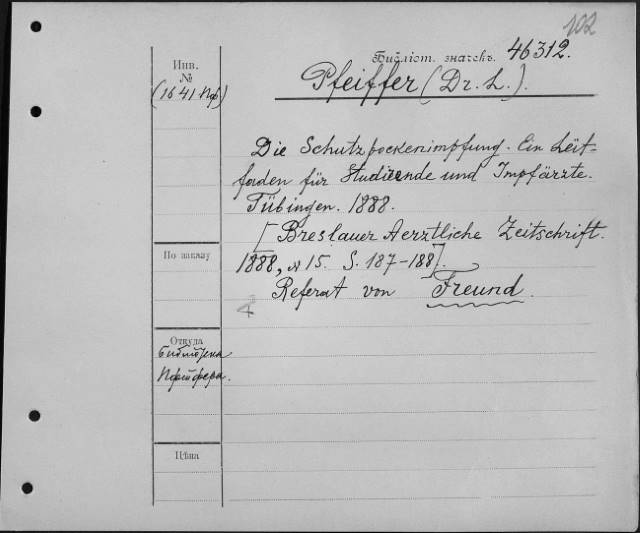 102
Библіот. значекъ. 46312.
Инв.
№
(1641 Пф.)
Pfeiffer (Dr. L.).
Die Schutzpockenimpfung. Ein Leit-
faden für Studierende und Impfärzte.
Tübingen. 1888.
[Breslauer Aerztliche Zeitschrift.
1888, № 15. S. 187-188].
Referat von Freund.
По заказу
Откуда
Библіотека
Пфейфера.
Цѣна